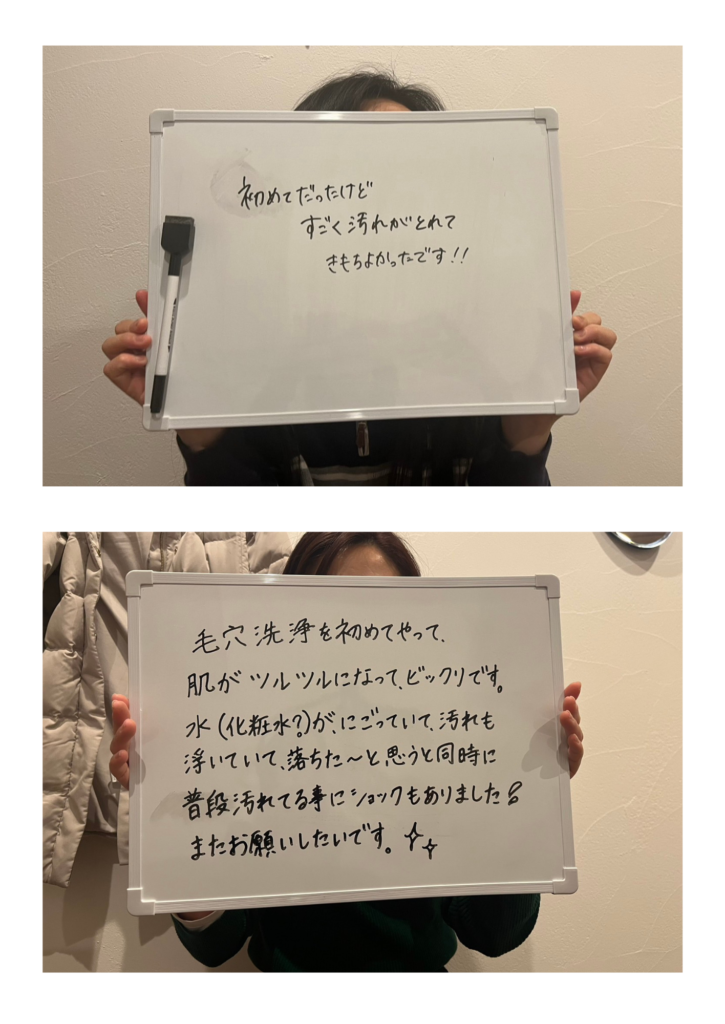 初めてだったけど
すごく汚れがとれて
きもちよかったです!!
毛穴洗浄を初めてやって、
肌がツルツルになって、ビックリです。
水(化粧水?)が、にごっていて、汚れも
浮いていて、落ちた〜と思うと同時に
普段汚れてる事にショックもありました
またお願いしたいです。